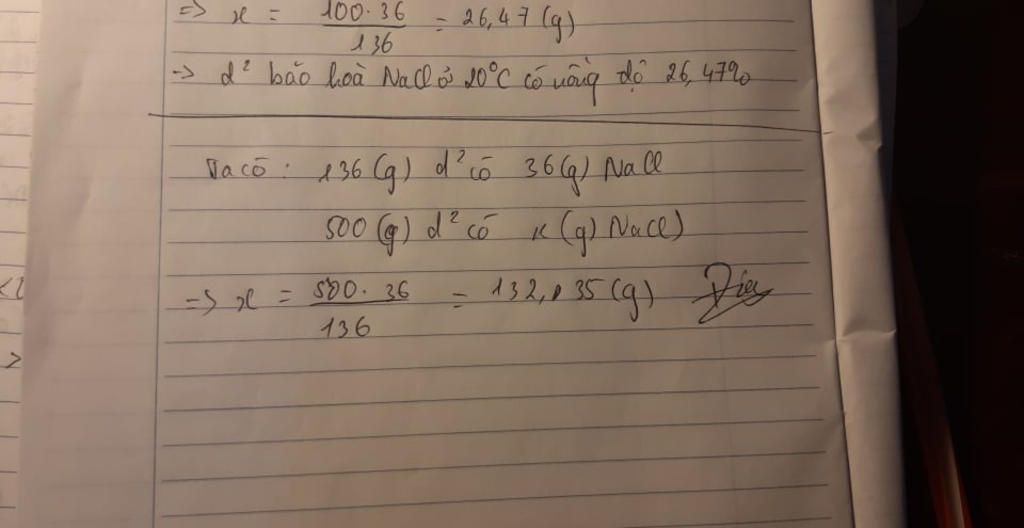 => x = 100.36 / 136 = 26,47 (g)
=> d² bão hoà NaCl ở 20°C có nồng độ 26,47%
Ta có : 136 (g) d² có 36 (g) NaCl
500 (g) d² có x (g) NaCl)
=> x = 500.36 / 136 = 132,35 (g)